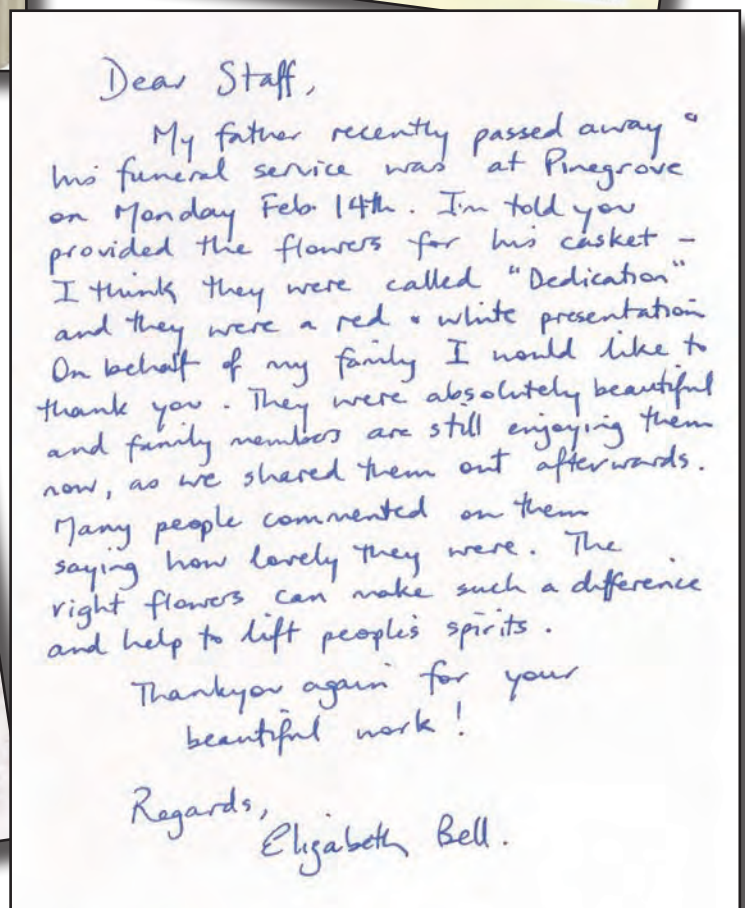 Dear Staff,
My father recently passed away &
his funeral service was at Pinegrove
on Monday Feb. 14th. I'm told you
provided the flowers for his casket –
I think they were called "Dedication"
and they were a red & white presentation
On behalf of my family I would like to
thank you. They were absolutely beautiful
and family members are still enjoying them
now, as we shared them out afterwards.
Many people commented on them
saying how lovely they were. The
right flowers can make such a difference
and help to lift people's spirits.
Thankyou again for your
beautiful work!
Regards,
Elizabeth Bell.